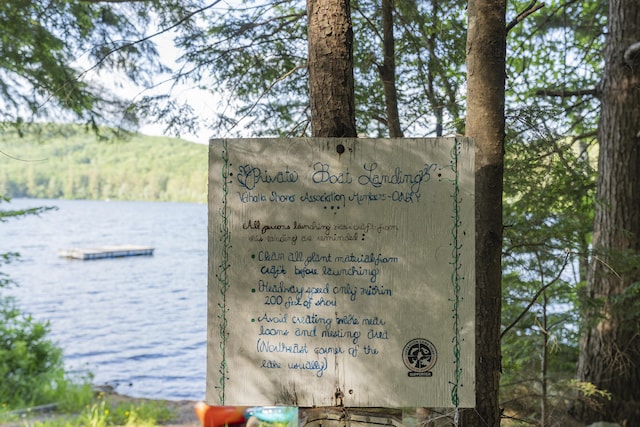 Private Boat Landing
Shores Association Members - ONLY
All persons launching watercraft from
this landing are reminded:
• Clean all plant material from
craft before launching
• Headway speed only within
200 feet of shore
• Avoid creating wake near
loons and nesting area
(Northeast corner of the
lake usually)
SUPPORTER